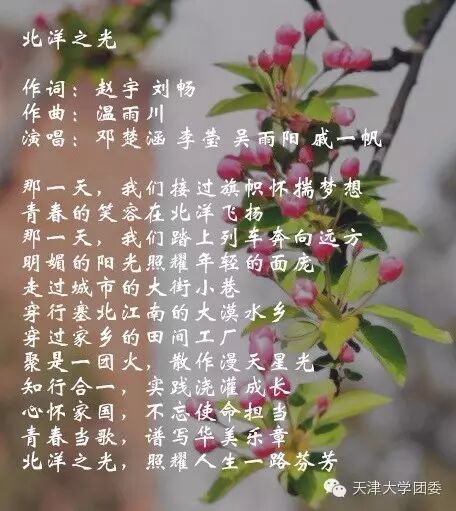 北洋之光
作词：赵宇 刘畅
作曲：温雨川
演唱：邓楚涵 李莹 吴雨阳 戚一帆
那一天，我们接过旗帜怀揣梦想
青春的笑容在北洋飞扬
那一天，我们踏上列车奔向远方
明媚的阳光照耀年轻的面庞
走过城市的大街小巷
穿行塞北江南的大漠水乡
穿过家乡的田间工厂
聚是一团火，散作漫天星光
知行合一，实践浇灌成长
心怀家国，不忘使命担当
青春当歌，谱写华美乐章
北洋之光，照耀人生一路芬芳
天津大学团委